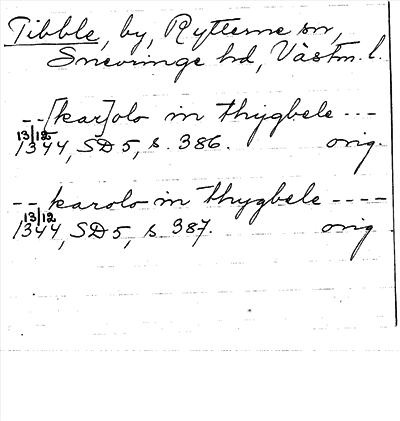 Tibble, by, Rytterne sn,
Snevringe hd, Västm. l.
--[kar]olo in thygbele ---
13/12
1344, SD 5, s. 386. orig.
-- karolo in thygbele ----
13/12
1344, SD 5, s. 387. orig